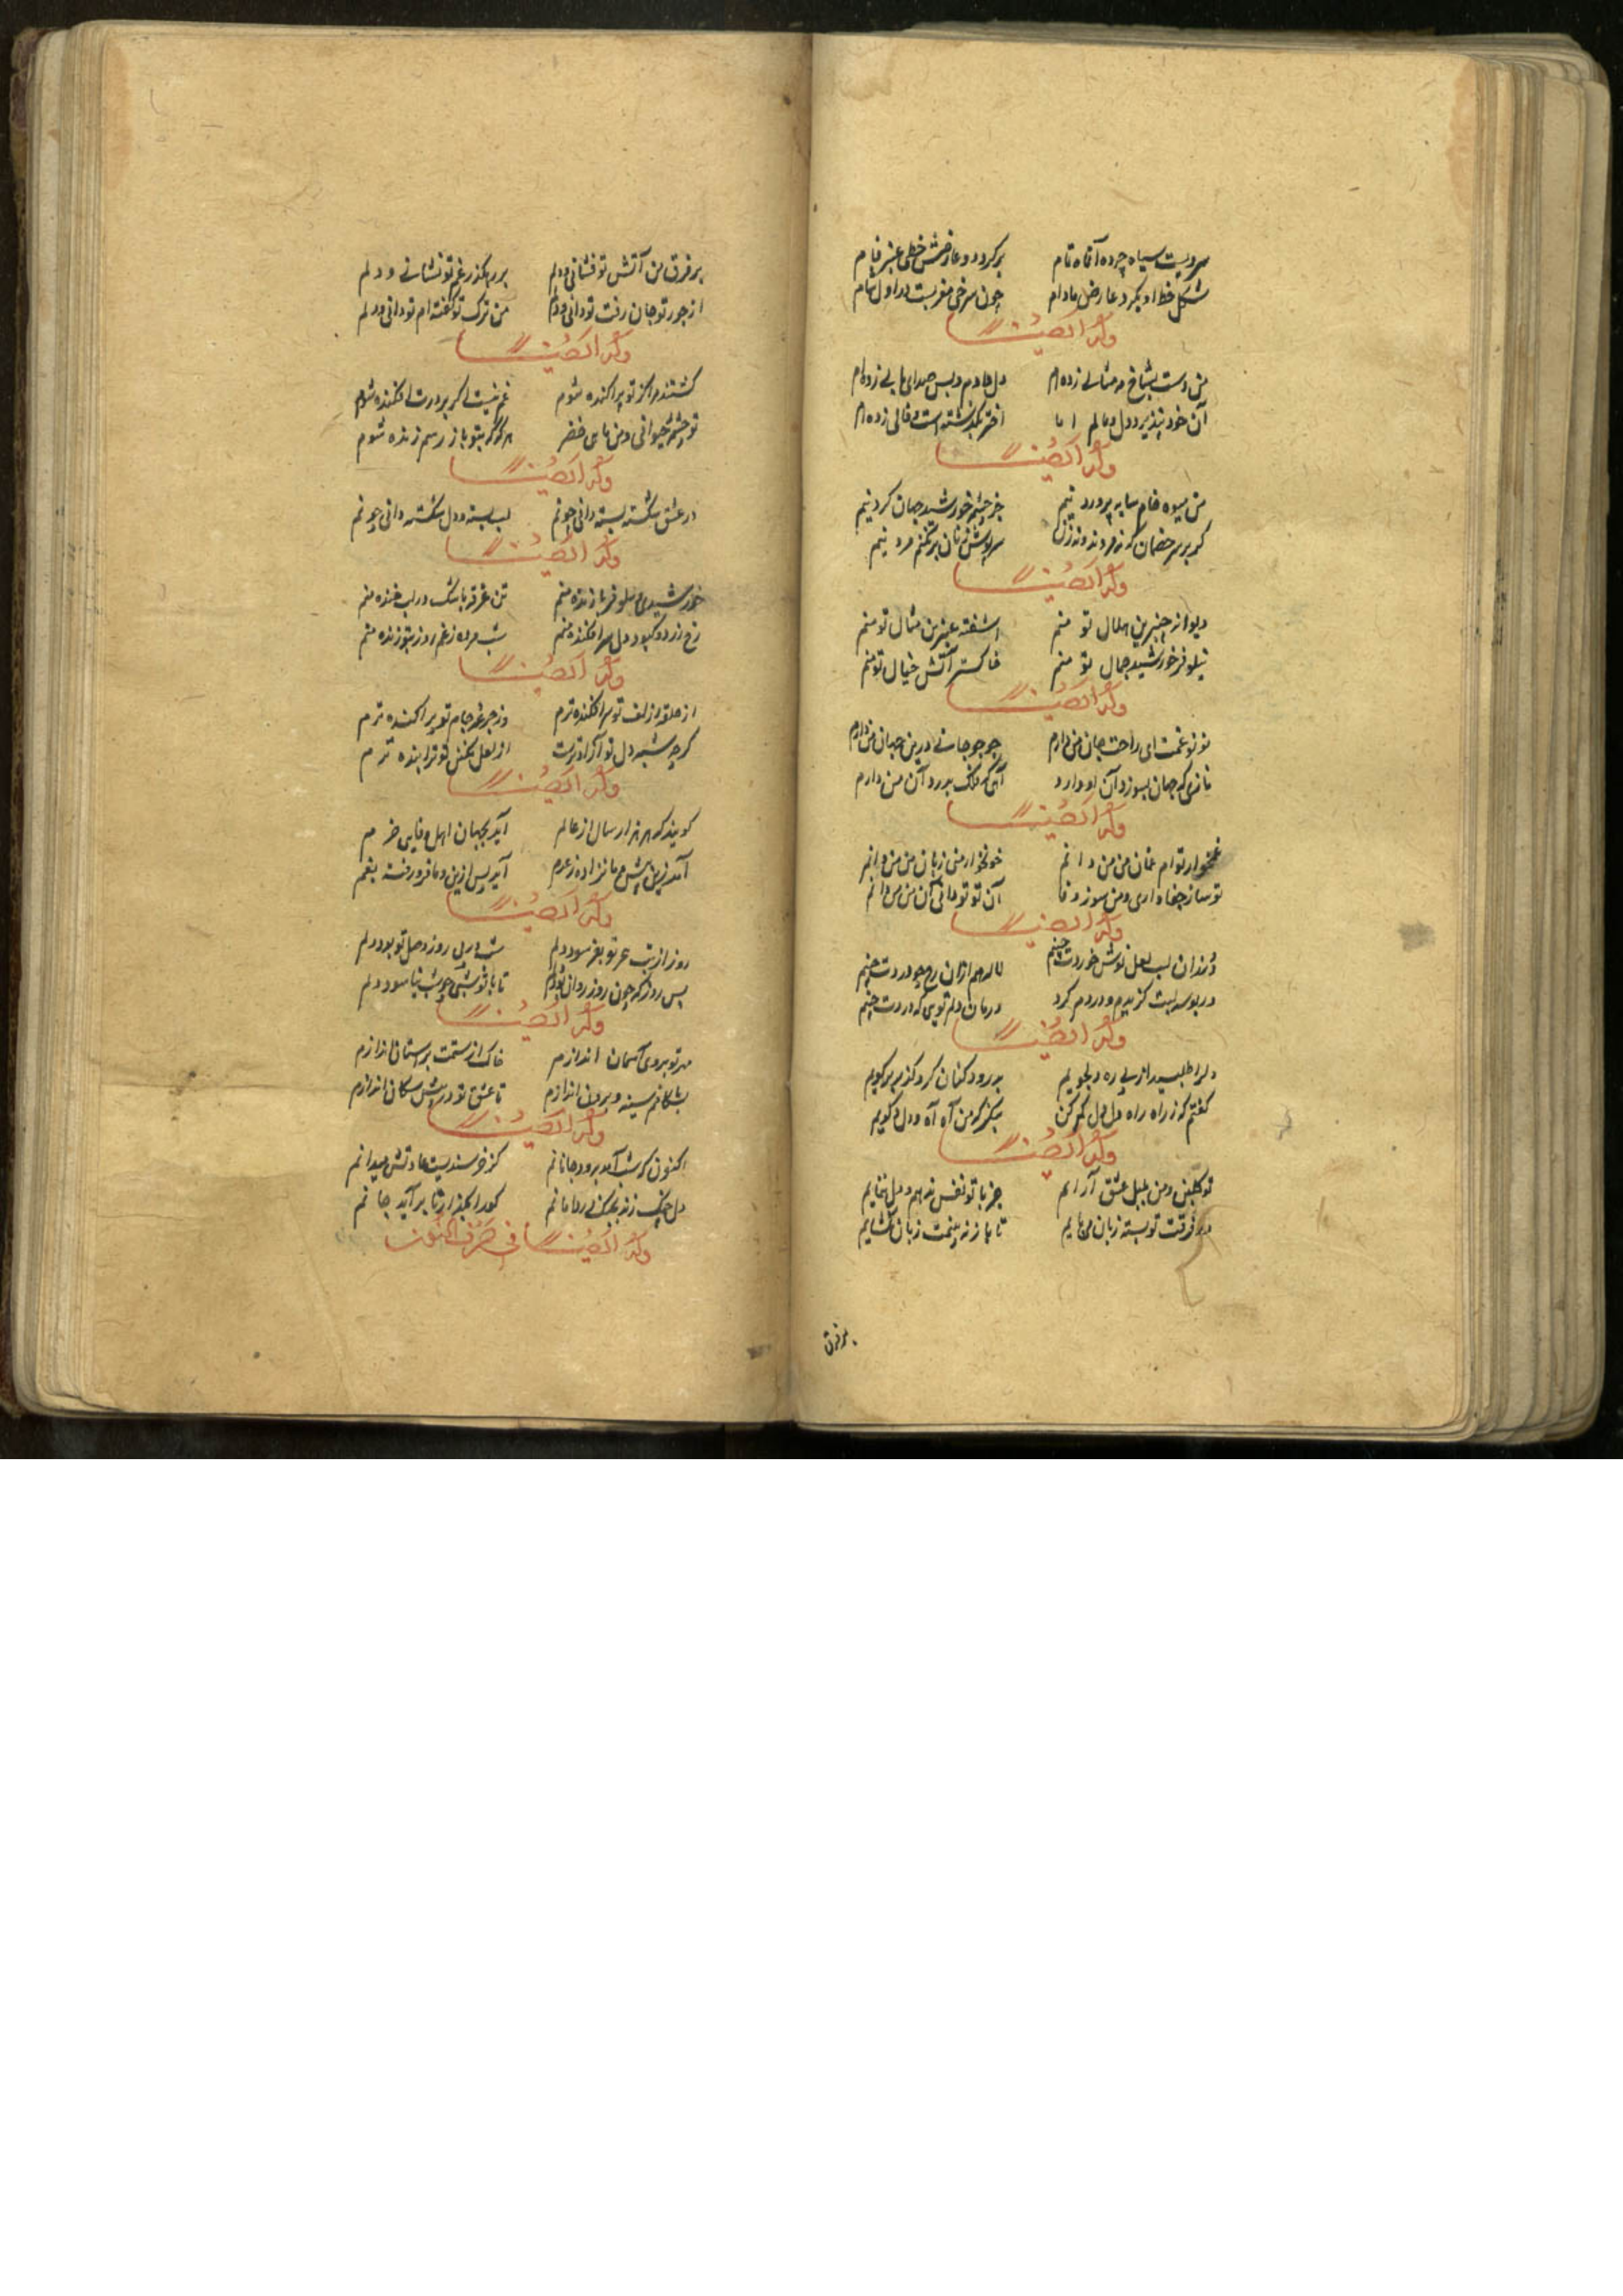 سرویست سیاه چرده آقاه تام برکرد دو عارضش خطی عنبر فام
شکل خط او بکرد عارض مادام چون سرخی مغربست در اول شام
وله ایضا
من دست بشاخ مه مثالی زده‌ام دل داده‌ام و بس صدای بلی زده‌ام
آن خود نپذیرد دل و مالم اما
وله ایضا
من میوه خام سایه پرورد نیم جز چشم خورشید جهان کرد نیم
گر بر سر خصمان که نه مردند و نه زن سرپوش زنان برفکنم مرد نیم
وله ایضا
دیوانه چنبرین هلال تو منم اشفته عنبرین مثال تو منم
نیلوفر خورشید جمال تو منم خاکستر آتش خیال تو منم
وله ایضا
نونو غمت ای راحت جان من دارم جوجو جانی درین جهان من دارم
نازی که جهان بسوزد آن او دارد آهی که فلک بدرد آن من دارم
وله ایضا
غمخوار توام غمان من من دانم خونخوار منی زیان من من دانم
تو ساز جفا داری و من سوز وفا آن تو تو دانی آن من من دانم
وله ایضا
دندان لب لعل نوش خوردت چینم لاله هم ازان رخ چو وردت چینم
در بوسه لبت گزیدم و دردم کرد درمان دلم تویی که دردت چینم
وله ایضا
دل را طلبیدم از پی ره دلجویم بدرود کنان کرد گذر بر کویم
گفتم که ز راه راه دل دل گم کن منگر که من آه آه و دل دل گویم
وله ایضا
تو گلبن و من بلبل عشق آرایم جز با تو نفس ندهم و دل ننمایم
در فرقت تو بسته زبان می‌آیم تا باز نه بینمت زبان نگشایم
بر فرق
بر فرق من آتش تو فشانی و دلم بر رهگذر غم تو نشانی و دلم
از جور تو جان رفت تو دانی و دلم من ترک تو گفته‌ام تو دانی و دلم
وله ایضا
کشتند مرا کز تو پراکنده شوم غم نیست اگر بر درت افکنده شوم
تو چشمه حیوانی و من ماهی خضر هرگه که بتو باز رسم زنده شوم
وله ایضا
در عشق شکسته بسته دانی چونم لب بسته و دل شکسته دانی چونم
وله ایضا
خورشیدی و نیلوفر نازنده منم تن غرقه باشک در لب خنده منم
رخ زرد و کبود دل سرافکنده منم شب مرده ز غم روز بتو زنده منم
وله ایضا
از حلقه زلف تو سرافکنده‌ترم وز جرعه جام تو پراکنده‌ترم
گرچه شبه دل تو آزادترست از لعل نگین تو ترا بنده‌ترم
وله ایضا
گویند که هر هزار سال از عالم آید بجهان اهل وفایی خرم
آمد زین پیش و ما نزاده ز عدم آید پس ازین و ما فرو رفته بغم
وله ایضا
روز از تب هجر تو بفرسود دلم شب در پی روز وصل تو بود دلم
بس روز که چون روز روان بود دلم تا با تو شبی چو شب نیاسود دلم
وله ایضا
مهر تو بروی آسمان اندازم خاک از ستمت بر استان اندازم
بشکافم سینه و برون اندازم تا عشق تو در پیش سگان اندازم
وله ایضا
اکنون که شب آمد برود جانانم کز خرسندیست عادتش میدانم
دل چنگ زند بچنگ در دامانم گو را مگذار تا برآید جانم
وله ایضا فی حرف النون